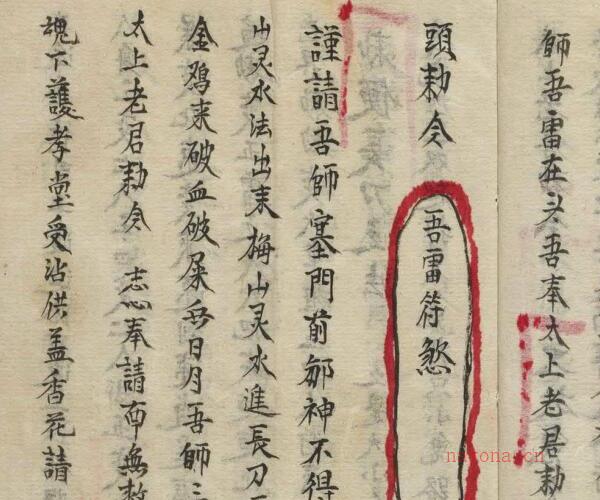 師吾雷在头吾奉太上老君勅
頭勅令
吾雷符煞
謹請吾師塞門前邪神不得
山灵水法出来梅山灵水進長刀
金鸡来破血破屎 日月吾師三
太上老君勅令 志心奉請南無救
魂下護孝堂受沾供盖香花請
narona.cn